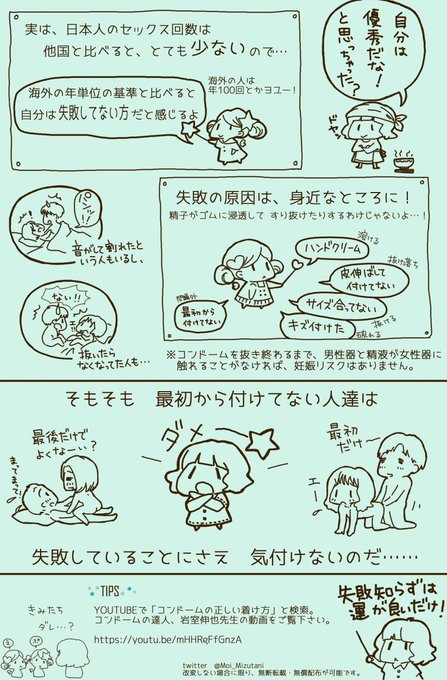 実は、日本人のセックス回数は
他国と比べると、とても少ないので…
海外の人は
年100回とかヨユー!
海外の年単位の基準と比べると
自分は失敗してない方だと感じるよ
自分は
優秀だな!
と思っちゃった?
ドヤッ
失敗の原因は、身近なところに!
精子がゴムに浸透して すり抜けたりするわけじゃないよ…!
溶ける
ハンドクリーム
抜け落ち
皮伸ばして
付けてない
サイズ合ってない
抜ける
キズ付けた
破れる
問題外
最初から
付けてない
パンッ
音がして割れたと
いう人もいるし、
ない!!
抜いたら
なくなってた人も…
※コンドームを抜き終わるまで、男性器と精液が女性器に
触れることがなければ、妊娠リスクはありません。
そもそも 最初から付けてない人達は
最後だけで
よくなーい?
まってまって!
ダメ
最初
だけ〜
エー
失敗していることにさえ 気付けないのだ……
TIPS
YOUTUBEで「コンドームの正しい着け方」と検索。
コンドームの達人、岩室伸也先生の動画をご覧下さい。
https://youtu.be/mHHRqFfGnzA
きみたち
ダレ…?
失敗知らずは
運が良いだけ!
twitter @Moi_Mizutani
改変しない場合に限り、無断転載・無償配布が可能です。